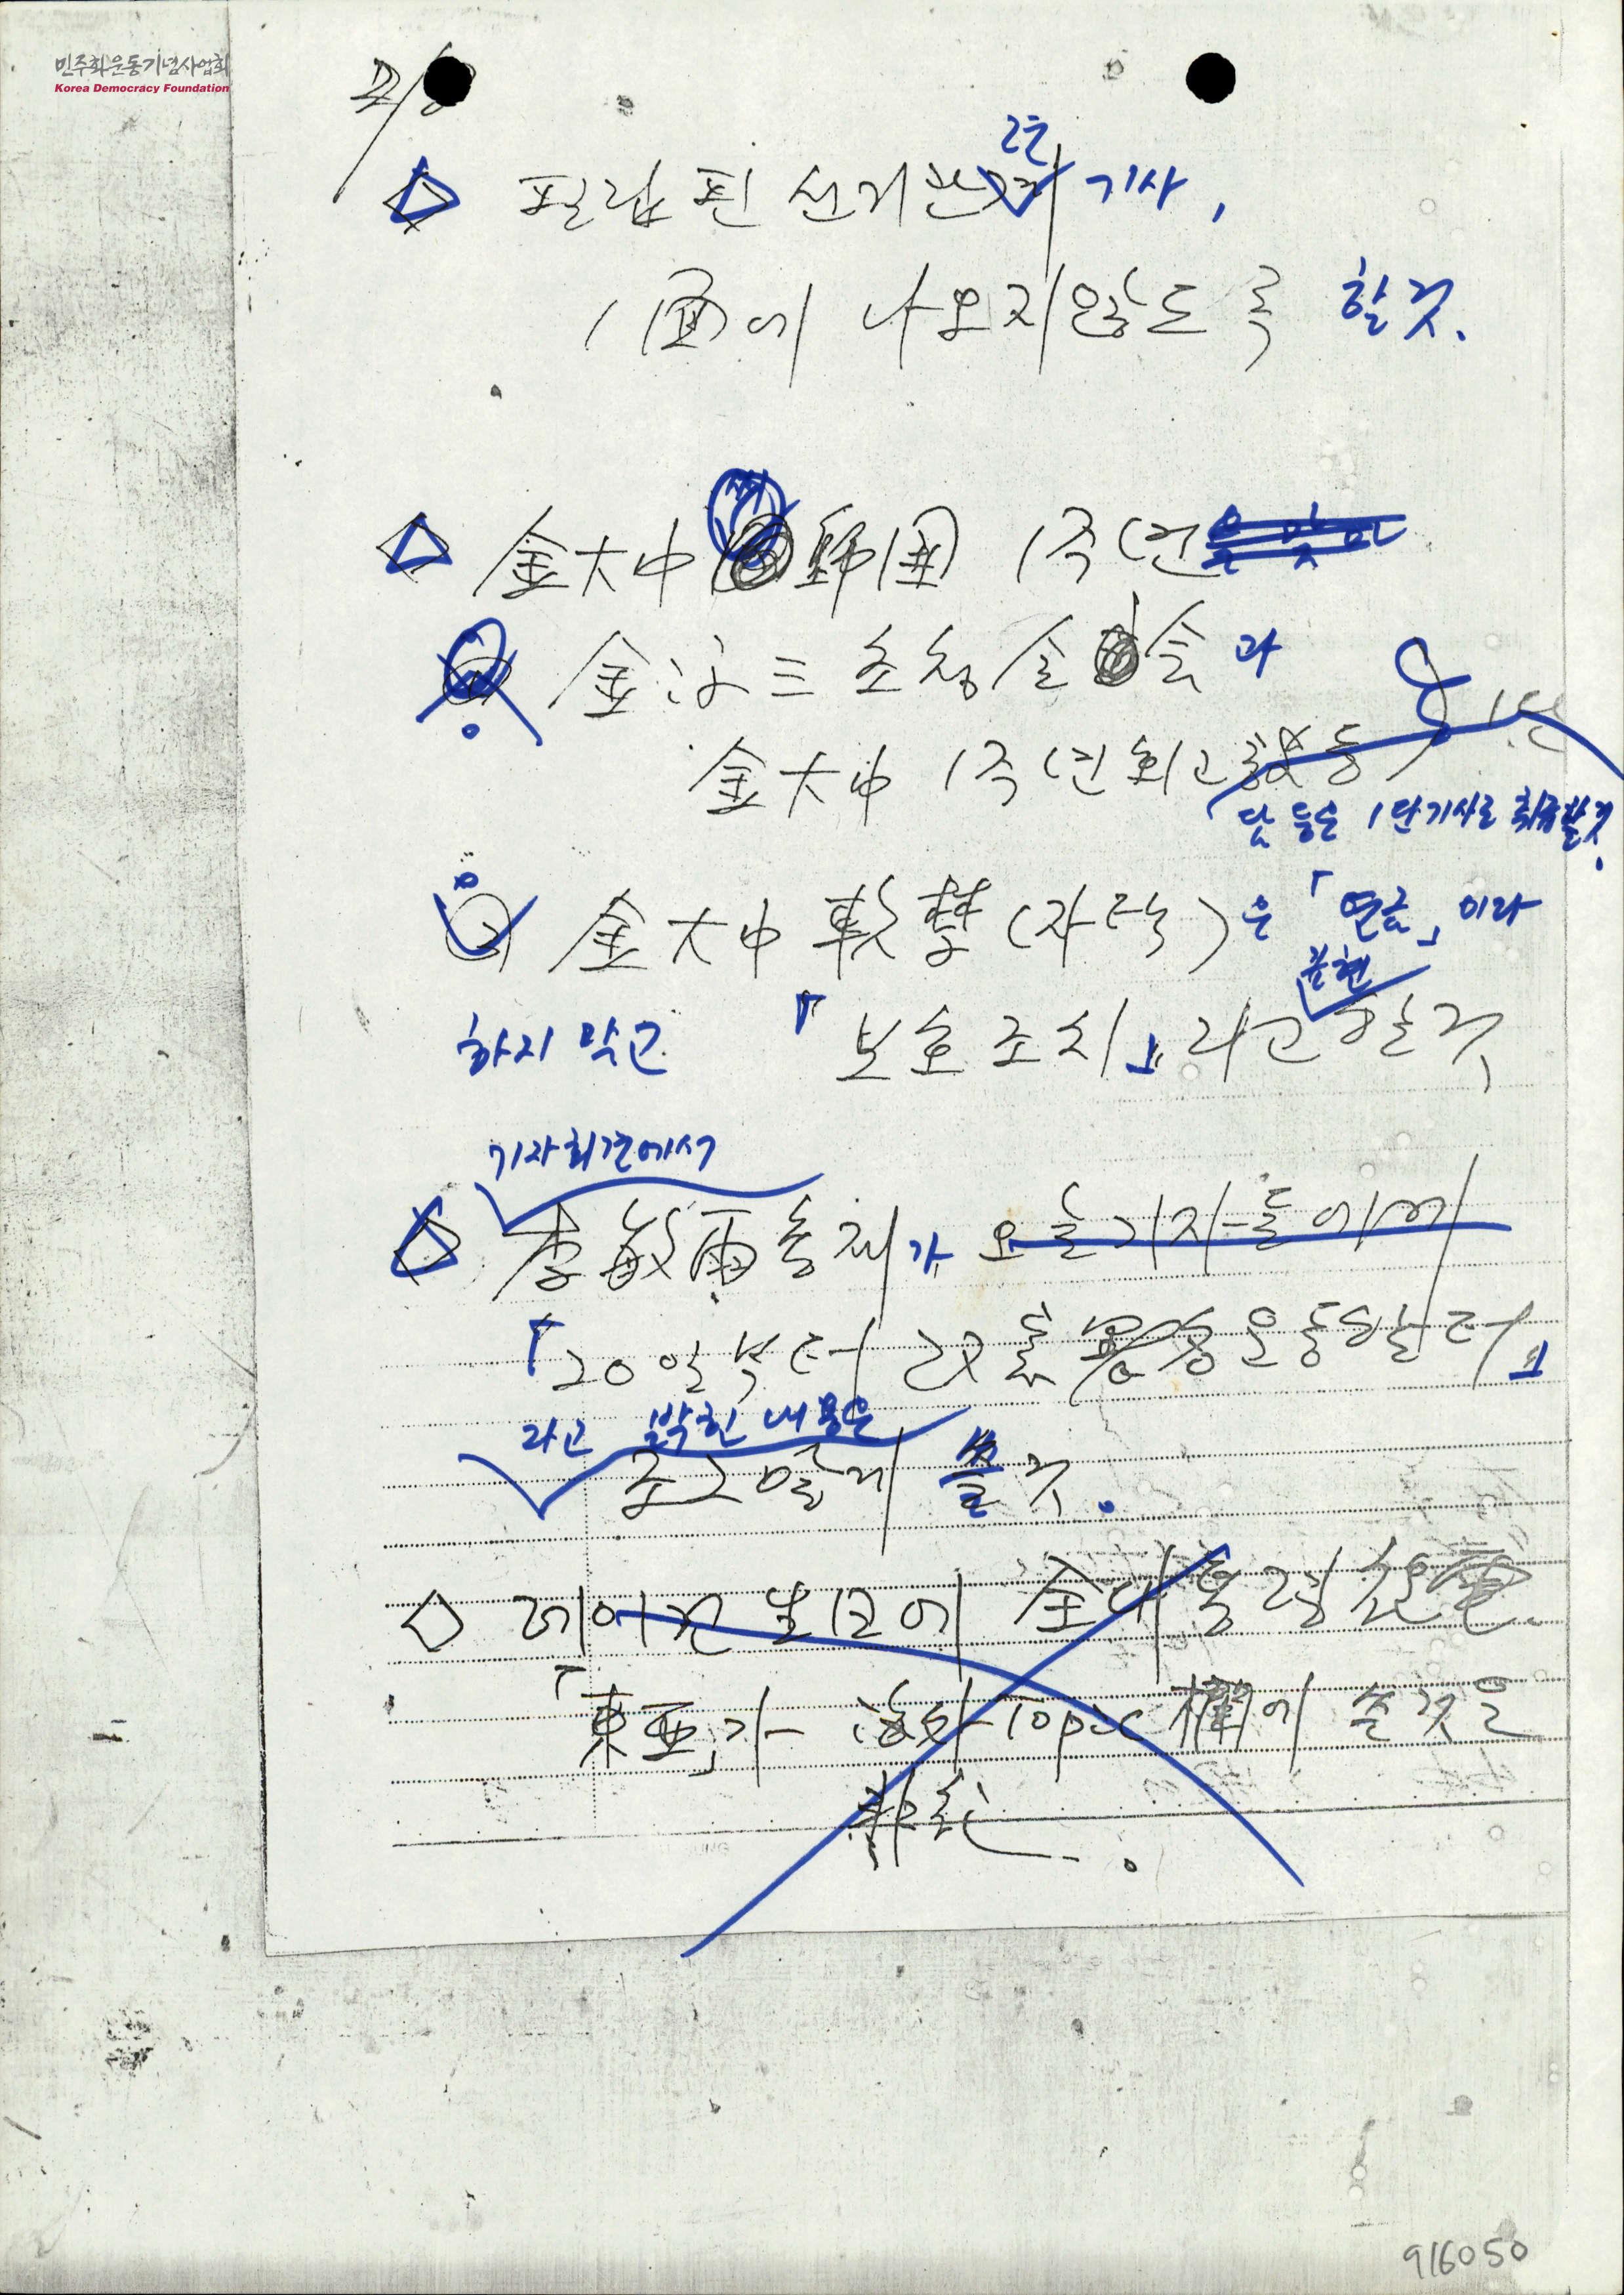 민주화운동기념사업회
Korea Democracy Foundation
2/8
련
필립핀 선거관계 기사,
1面에 나오지않도록 할것.
金大中 歸國 1주년을 맞아
金泳三 초청 金 会과
金大中 1주년 회고 등 1단
담 등은 1단기사로 취급할것.
② 金大中 軟禁(자택)은 「연금」이라
표현
하지 말고 「보호조치」라고 할것
기자회견에서
李敏雨총재가 오늘기자들에게
「20일부터 改憲署名운동할터」
라고 밝힌 내용은
조그맣게 쓸것.
레이건 생일에 全대통령 祝電.
「東亜」가 海外Topic 欄에 쓴것을
916050